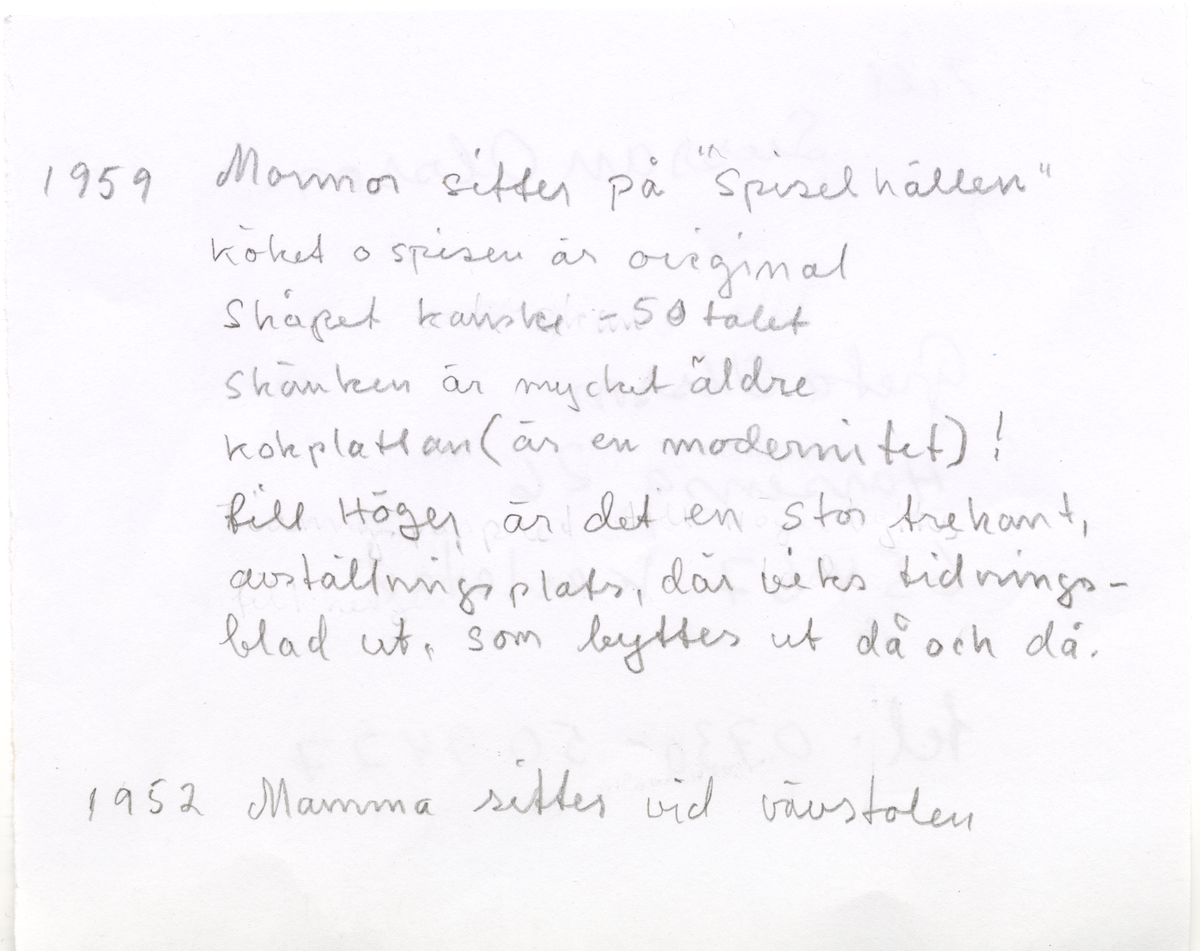 1959 Mormor sitter på "Spiselhällen"
köket o spisen är original
Skåpet kanske -50 talet
Skänken är mycket äldre
kokplattan (är en modernitet)!
till Höger är det en stor trekant,
avställningsplats, där veks tidnings-
blad ut, som byttes ut då och då.
1952 Mamma sitter vid vävstolen